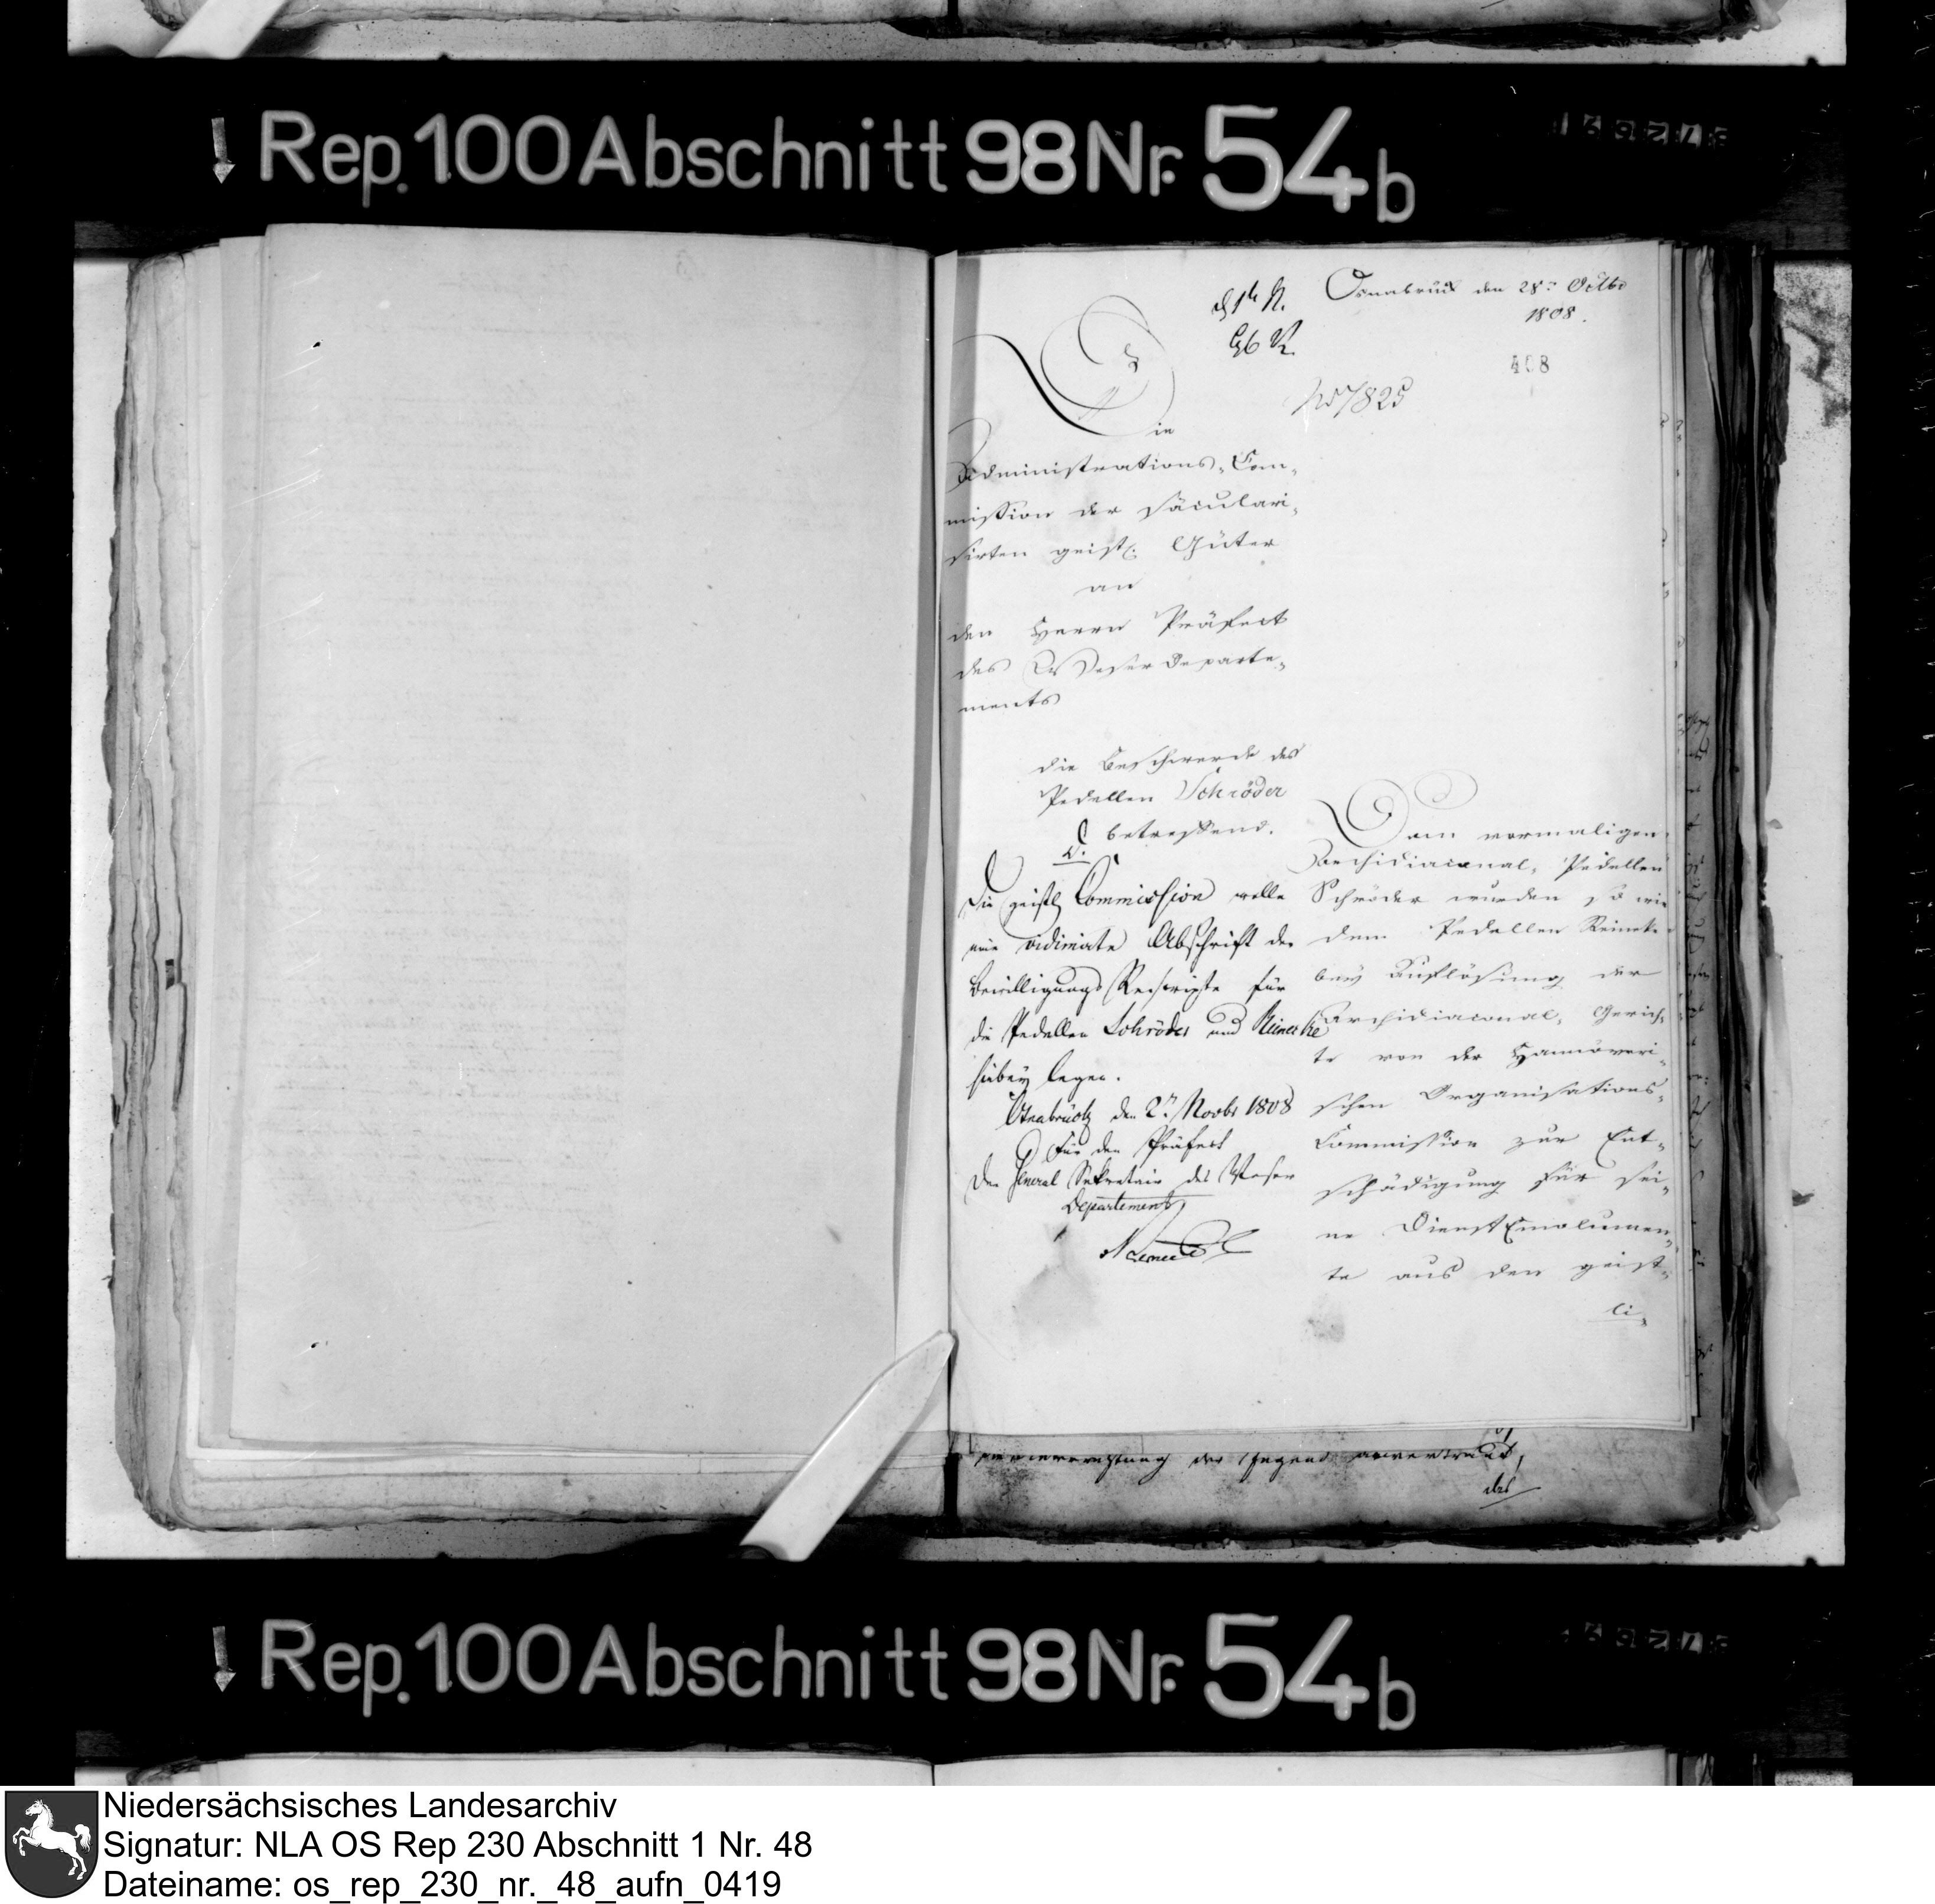 Rep. 100 Abschnitt 98 Nr. 54b
Osnabrück den 28ⁿ Octbr
1808.
408
Die
Administrations-Com-
mission der säculari-
sirten geistl. Güter
an
den Herrn Präfect
des Weser Departe-
ments
die Beschwerde des
Pedellen Schröder
betreffend.
Die geistl Commission wolle
eine vidimirte Abschrift der
Bewilligungs Rescripte für
die Pedellen Schröder und Reinecke
hiebey legen.
Osnabrück den 2ⁿ Novbr 1808
Für den Präfect
Der General Sekretair des Weser
Departements
Dem vormaligen
Archidiaconal-Pedellen
Schröder wurden so wie
dem Pedellen Reineke
bey Auflösung der
Archidiaconal-Gerich-
te von der Hannöveri-
schen Organisations-
Commission zur Ent-
schädigung für sei-
ne DienstEmolumen-
te aus den geist-
li-
der Jugend anvertraut,
das
Rep. 100 Abschnitt 98 Nr. 54b
Niedersächsisches Landesarchiv
Signatur: NLA OS Rep 230 Abschnitt 1 Nr. 48
Dateiname: os_rep_230_nr._48_aufn_0419